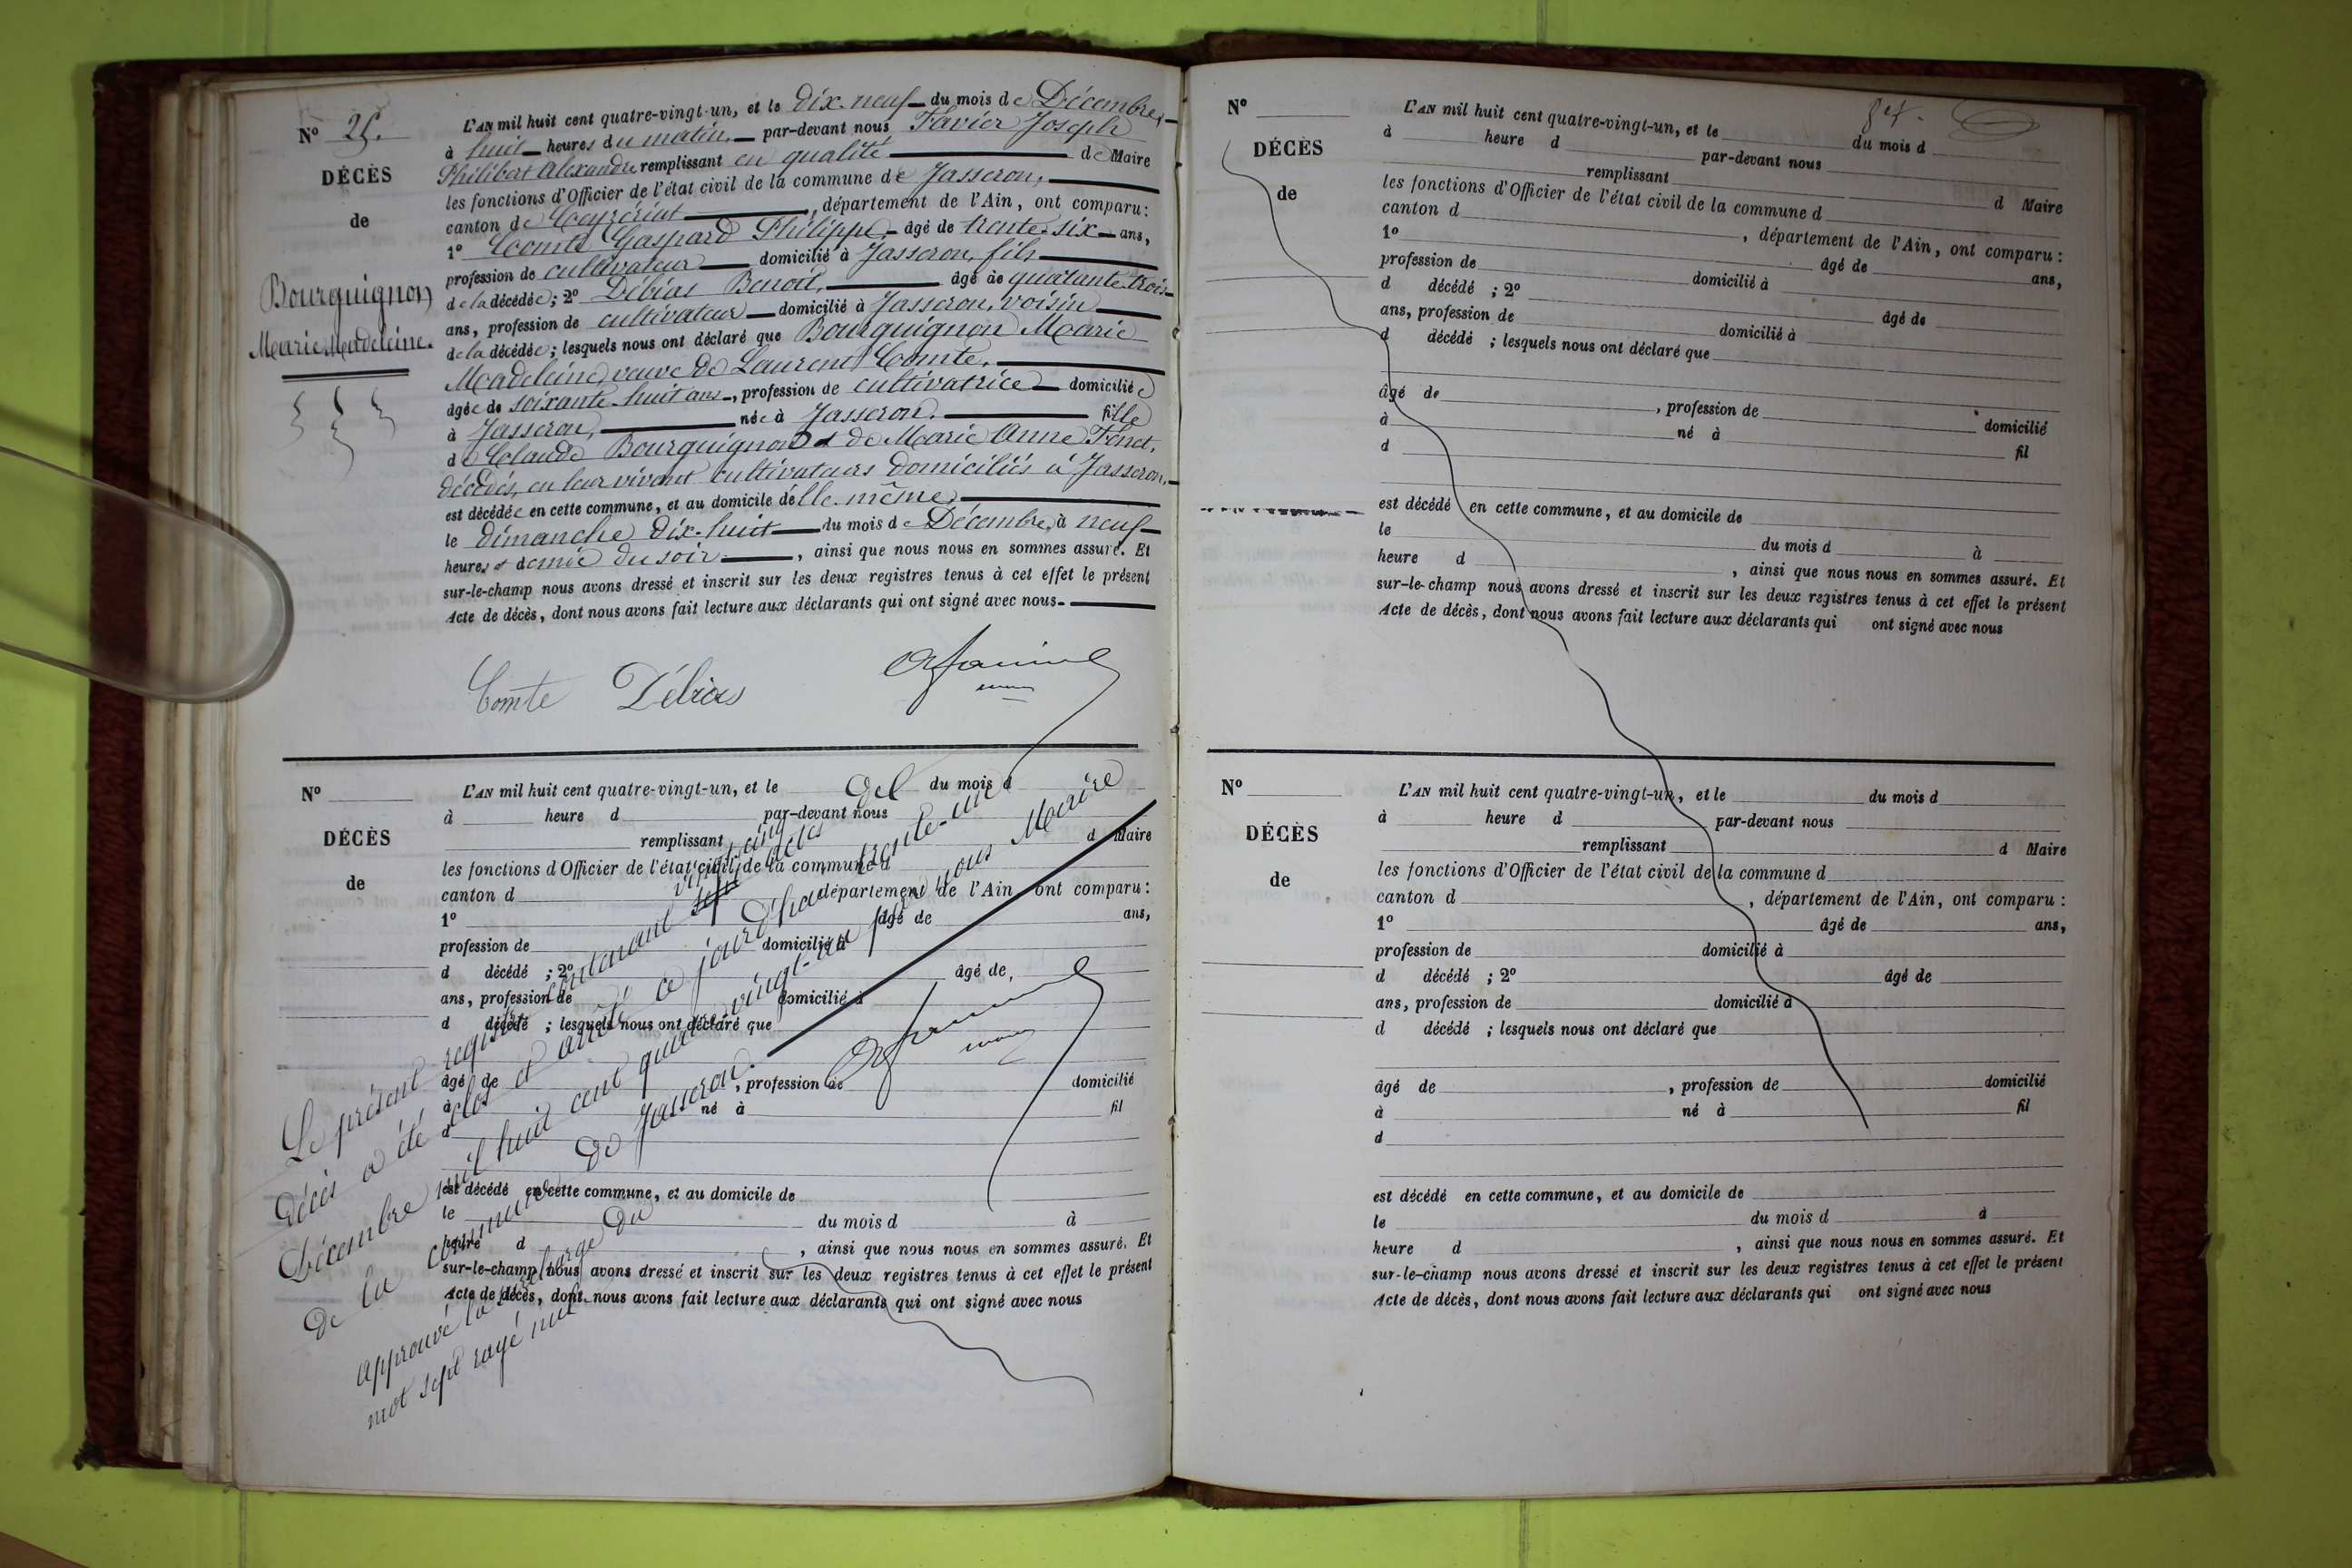 N° 25.
DÉCÈS
de
Bourguignon
Marie Madeleine.
L'AN mil huit cent quatre-vingt-un, et le dix-neuf du mois de Décembre,
à huit heures du matin, par-devant nous Favier Joseph
Philibert Alexandre remplissant en qualité de Maire
les fonctions d'Officier de l'état civil de la commune de Jasseron,
canton de Ceyzériat, département de l'Ain, ont comparu :
1° Comte Gaspard Philippe, âgé de trente-six ans,
profession de cultivateur domicilié à Jasseron, fils
de la décédée ; 2° Débias Benoit, âgé de quarante-trois
ans, profession de cultivateur domicilié à Jasseron, voisin
de la décédée ; lesquels nous ont déclaré que Bourguignon Marie
Madeleine, veuve de Laurent Comte,
âgée de soixante-huit ans, profession de cultivatrice domiciliée
à Jasseron, née à Jasseron, fille
de Claude Bourguignon et de Marie Anne
décédés, en leur vivant cultivateurs domiciliés à Jasseron,
est décédée en cette commune, et au domicile d'elle-même,
le dimanche dix-huit du mois de Décembre, à neuf
heures et demie du soir, ainsi que nous nous en sommes assuré. Et
sur-le-champ nous avons dressé et inscrit sur les deux registres tenus à cet effet le présent
Acte de décès, dont nous avons fait lecture aux déclarants qui ont signé avec nous.
Comte Débias
N°
DÉCÈS
de
L'AN mil huit cent quatre-vingt-un, et le du mois d
à heure d par-devant nous
remplissant d Maire
les fonctions d'Officier de l'état civil de la commune d
canton d département de l'Ain, ont comparu :
1° âgé de ans,
profession de domicilié à
d décédé ; 2° âgé de
ans, profession de domicilié à
d décédé ; lesquels nous ont déclaré que
âgé de , profession de domicilié
à né à fil
d
est décédé en cette commune, et au domicile de
le du mois d à
heure d , ainsi que nous nous en sommes assuré. Et
sur-le-champ nous avons dressé et inscrit sur les deux registres tenus à cet effet le présent
Acte de décès, dont nous avons fait lecture aux déclarants qui ont signé avec nous
Le présent registre contenant sept vingt-cinq actes de
décès a été clos et arrêté ce jourd'hui trente-un
Décembre mil huit cent quatre-vingt-un par nous Maire
de la commune de Jasseron.
approuvé la surcharge du
mot sept rayé nul
N°
DÉCÈS
de
L'AN mil huit cent quatre-vingt-un, et le du mois d
à heure d par-devant nous
remplissant d Maire
les fonctions d'Officier de l'état civil de la commune d
canton d , département de l'Ain, ont comparu :
1° âgé de ans,
profession de domicilié à
d décédé ; 2° âgé de
ans, profession de domicilié à
d décédé ; lesquels nous ont déclaré que
âgé de , profession de domicilié
à né à
d fil
est décédé en cette commune, et au domicile de
le du mois d à
heure d , ainsi que nous nous en sommes assuré. Et
sur-le-champ nous avons dressé et inscrit sur les deux registres tenus à cet effet le présent
Acte de décès, dont nous avons fait lecture aux déclarants qui ont signé avec nous
N°
DÉCÈS
de
L'AN mil huit cent quatre-vingt-un, et le du mois d
à heure d par-devant nous
remplissant d Maire
les fonctions d'Officier de l'état civil de la commune d
canton d , département de l'Ain, ont comparu :
1° âgé de ans,
profession de domicilié à
d décédé ; 2° âgé de
ans, profession de domicilié à
d décédé ; lesquels nous ont déclaré que
âgé de , profession de domicilié
à né à fil
d
est décédé en cette commune, et au domicile de
le du mois d à
heure d , ainsi que nous nous en sommes assuré. Et
sur-le-champ nous avons dressé et inscrit sur les deux registres tenus à cet effet le présent
Acte de décès, dont nous avons fait lecture aux déclarants qui ont signé avec nous